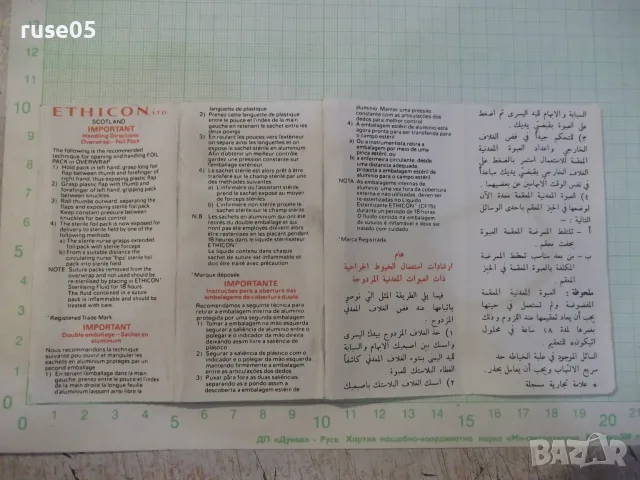 ruse05
ETHICON LTD
SCOTLAND
IMPORTANT
Handling Directions
Overwrap - Foil Pack
The following is the recommended
technique for opening and handling FOIL
PACK in OVERWRAP
1) Hold pack in left hand, grasp long foil
flap between thumb and forefinger of
right hand, thus exposing plastic flap
2) Grasp plastic flap with thumb and
forefinger of left hand, gripping pack
between knuckles
3) Roll thumbs outward, separating the
flaps and exposing sterile foil pack
Keep constant pressure between
knuckles for best control
4) The sterile foil pack is now open for
delivery to sterile field by one of the
following methods
a) The sterile nurse grasps extended
foil pack with sterile forceps
b) From a suitable distance the
circulating nurse "flips" sterile foil
pack into sterile field
NOTE: Suture packs removed from the
overwrap and not used should be
re-sterilised by placing in ETHICON*
Sterilising Fluid for 18 hours
The fluid contained in a suture
pack is inflammable and should be
treated with care.
*Registered Trade Mark
IMPORTANT
Double emballage - Sachet en
aluminium
Nous recommandons la technique
suivante pour ouvrir et manipuler les
sachets en aluminium protégés par un
second emballage
1) En tenant l'emballage dans la main
gauche, prenez entre le pouce et l'index
de la main droite la longue feuille
d'aluminium laissant ainsi libre la
languette de plastique
2) Prenez cette languette de plastique
entre le pouce et l'index de la main
gauche en retenant le sachet entre les
deux poings
3) En roulant les pouces vers l'extérieur
on sépare ainsi les languettes et on
expose le sachet stérile en aluminium
Afin d'obtenir un meilleur contrôle
gardez une pression constante sur
l'emballage extérieur
4) Le sachet stérile est alors prêt à être
transféré sur le champ stérile par une
des méthodes suivantes
a) L'infirmière ou l'assistant stérile
prend le sachet exposé avec une
pince stérile
b) L'infirmière non stérile projette le
sachet stérile sur le champ stérile
N.B. Les sachets en aluminium qui ont été
retirés du double emballage et qui
n'ont pas été employés doivent alors
être restérilisés en les plaçant pendant
18 heures dans le liquide stérilisateur
ETHICON*
Le liquide contenu dans chaque
sachet de suture est inflammable et
doit être manié avec précaution
*Marque déposée
IMPORTANTE
Instruções para a abertura das
embalagens de cobertura dupla
Recomendamos a seguinte técnica para
retirar a embalagem interna de alumínio
protegida por uma segunda embalagem
1) Tomar a embalagem na mão esquerda
segurar a saliência de alumínio entre o
polegar e o indicador da mão direita
deixando assim livre a saliência de
plástico
2) Segurar a saliência de plástico com o
indicador e o polegar da mão esquerda
mantendo firmemente a embalagem
entre as articulações dos dedos
3) Puxar para fora as duas saliências
separando-as e pondo assim a
descoberta a embalagem estéril de
alumínio. Manter uma pressão
constante com as articulações dos
dedos para melhor control
4) A embalagem estéril de alumínio está
agora pronta para ser transferida para
o campo estéril
a) Ou a instrumentista retira a
embalagem por meio de uma
pinça estéril, ou
b) a enfermeira circulante, desde
uma distância adequada,
projecta a embalagem estéril de
alumínio para o campo estéril
NOTA: As embalagens internas de
alumínio, uma vez fora da cobertura
externa e não utilizadas, devem ser
re-esterilizadas no Líquido
Esterilizante ETHICON* (CF15)
durante um período de 18 horas
O fluido contido na embalagem
de sutura é inflamável e deve ser
tratado com cuidado
*Marca Registrada
هام
ارشادات استعمال الخيوط الجراحية
ذات العبوات المعدنية المزدوجة
فيما يلي الطريقة المثلى التي نوصي
باتباعها عند فض الغلاف المعدني
المزدوج :
١) خذ الغلاف المزدوج بيدك اليسرى
وامسك بين اصبعيك الابهام والسبابة
لليد اليمنى بنتوء الغلاف المعدني كاشفاً
الغطاء البلاستك للصوة
٢) امسك الغلاف البلاستك باصبعيك
السبابة والابهام لليد اليسرى ثم اضغط
على الصوة بقبضتي يديك .
٣) لتتمكن جيداً في فض الغلاف
الخارجي واعداد الصوة المعدنية
المعقمة للاستعمال استمر بالضغط على
الغلاف الخارجي بقبضتي يديك مباعداً
في نفس الوقت الابهامين عن بعضهما .
٤) الصوة المعدنية المعقمة جاهزة الآن
لوضعها في الحيز المعقم باحدى الوسائل
التالية :-
أ - تلتقط الممرضة المعقمة الصوة
بجفت معقم .
ب - من بعد مناسب تسقط الممرضة
المكلفة بالصوة المعقمة في الحيز
المعقم .
ملحوظة : الصوة المعدنية المعقمة
المفضوضة ولم تستعمل في حينها
يجب ان يعاد تعقيمها عند اللزوم وذلك
بغمرها لمدة ١٨ ساعة في محلول
اثيكون* للتعقيم
السائل الموجود في علبة الخياطة حد
سريع الالتهاب ويجب أن يعامل بحذر.
* علامة تجارية مسجلة
10
9
8
7
6
5
4
3
2
1
0
0 1 2 3 4 5 6 7 8 9 10 11 12 13 14 15 16 17 18 19 20
ДП «Дунав» - Русе
БАЗАР.bg